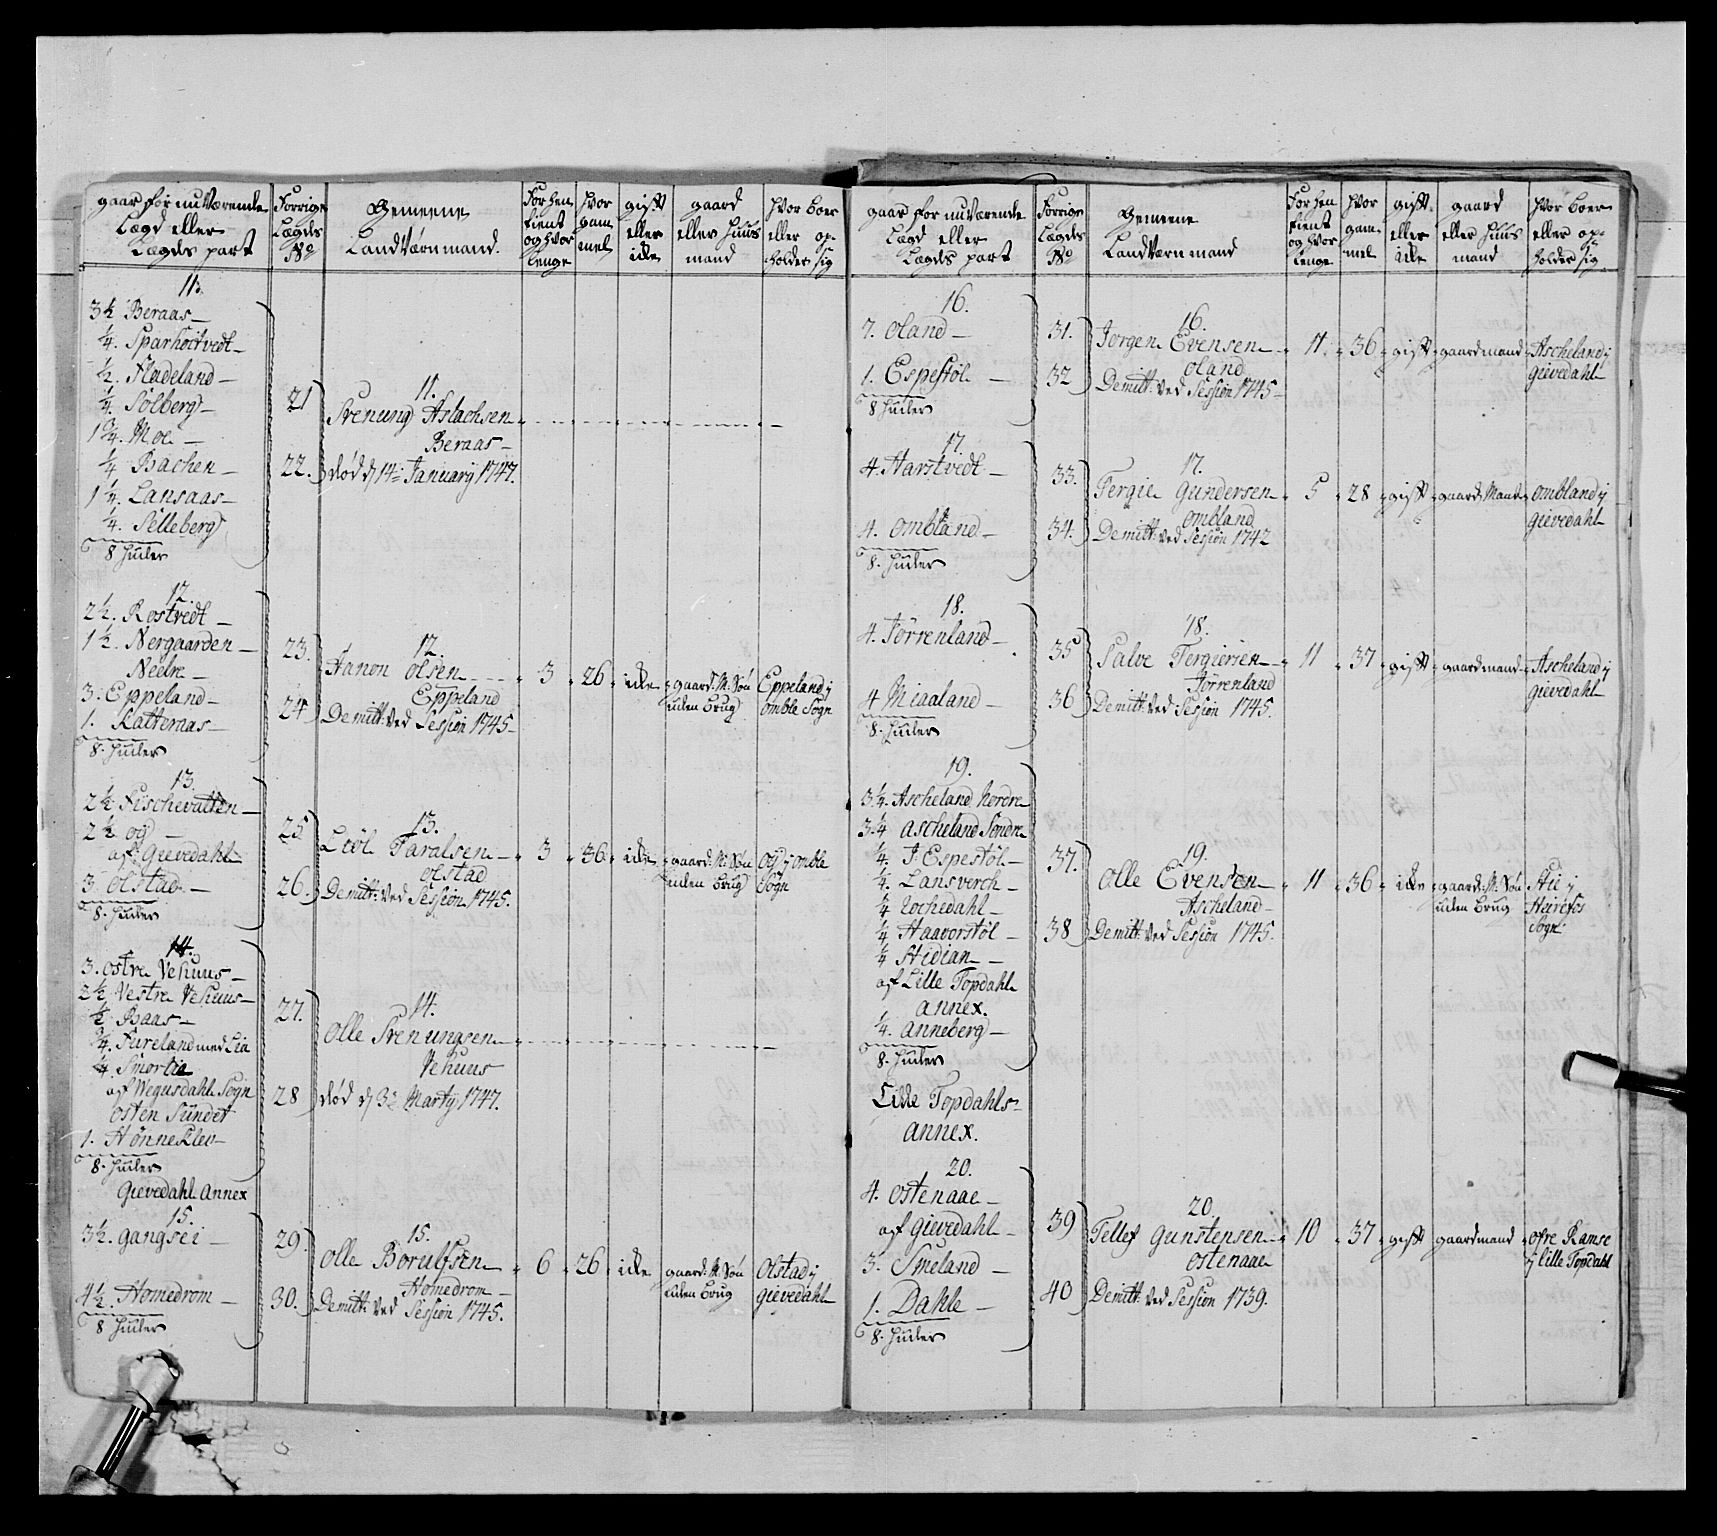 gaar for nu Værende
Lægd eller
Lægds part
Forrige
Lægds
No
Gemeene
LandVærn mand.
For hen
tient
og hvor
lenge
Hvor
gam¬
mel
gift
eller
icke
gaard
eller Huus
mand
Hvor boer
eller op¬
holder sig
11.
3½ Beraas
¼. Sparhoitvedt
½. Fladeland
¼. Solberg
1¼. Moe
¼ Bachen
1¼. Lansaas
¼. Selleberg
8 Huder
21
22.
11.
Svenung Aslachsen
Beraas
død d 14 January 1747.
12.
2½. Rostvedt
1½. Nergaarden
Nedre
3. Eppeland
1. Katteraas
8. Huder
23.
24
12.
Hanon Olsen
Eppeland
Demitt: Ved Session 1745
3
26
icke
gaard: M: Søn
uden Brug
Eppeland j
omble Sogn
13.
2½ Fischevatten
2½ og
af Gievedahl
3. Olstad
8. Huder
25
26.
13.
Taralsen
Olstad
Demitt: Ved Session 1745.
3
36
icke
gaard: M: Søn
uden Brug
og j omble
Sogn
14.
3. Ostre Vehuus
2½ Vestre Vehuus
½ Baas
¾. Fureland med Lia
¼. Smorlia
af Wegusdahl Sogn
Osten Sundet
1. Hønneklev
8. Huder
27.
28
14.
Olle Svenungsen
Vehuus
død d 3 Marty 1747.
Gievedahl Annex
15.
3½. Gangsei
4½. Homedrom
8 Huder
29.
30.
15.
Olle Borulfsen
Homedrom
Demitt: Ved Session 1745.
6
26
icke
gaard: M: Søn
uden Brug
Olstad j
Gievedahl
gaar for nu Værende
Lægd eller
Lægds part
Forrige
Lægds
No
Gemeene
LandVærn mand
For hen
tient
og hvor
lenge
Hvor
gam¬
mel
gift
eller
icke
gaard
eller Huus
mand
Hvor boer
eller op¬
holder sig
16.
7. Oland
1. Espestøl
8 Huder
31.
32
16.
Jorgen Evensen
Oland
Demitt: Ved Session 1745
11.
36
gift
gaardmand
Ascheland j
Gievedahl
17.
4. Harstvedt
4. Ombland
8. Huder
33.
34.
17.
Tergie Gundersen
Ombland
Demitt: Ved Session 1742
5
28
gift
gaard: Mand
Ombland j
Gievedahl
18.
4. Torrenland
4 Miaaland
8. Huder
35
36
18.
Salve Tergiersen
Torrenland
Demitt: Ved Session 1745.
11
37
gift
gaardmand
Ascheland j
Gievedahl
19.
3¼. Ascheland Nordre
3¼ Ascheland Søndre
¼. J: Espestøl
¼. Lansverch
¼ Uochedahl
¼ Haavorstøl
¼ Hidian
af Lille Topdahl
Annex.
¼. Anneberg
8. Huder
37.
38
19.
Olle Evensen
Ascheland
Demitt: Ved Session 1745.
11
36
icke
gaard: M: Søn
uden Brug
Hie j
Heirefos
Sogn
Lille Topdahls
Annex.
20.
4. Ostenaae
af Gievedahl
3. Smeland
1. Dahle
8. Huder
39
40
20.
Tellef Gunstensen
Ostenaae
Demitt: Ved Session 1739.
10
37
gift
gaardmand
Øfre Ramse
j Lille Topdahl